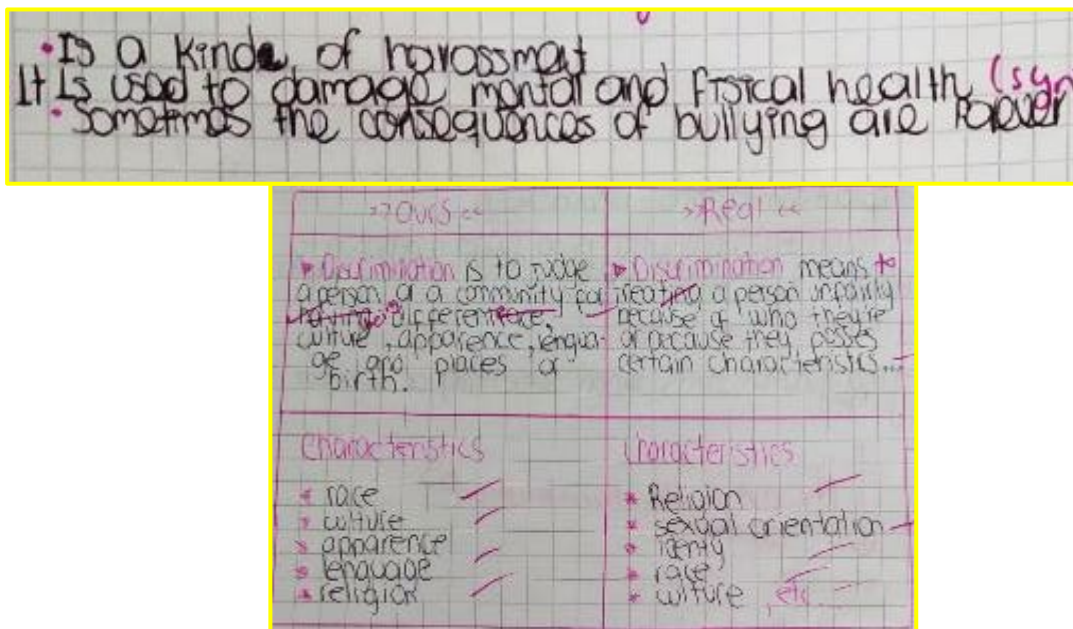 • Is a kinde of harassmat
It Is used to damage mental and fisical health (syn
• Sometimes the consequences of bullying are forever
>>Ours<<
>>Real<<
▸ Discrimination is to judge
a person or a community for
having different race,
culture, apparence, lengua-
ge and places of
birth.
▸ Discrimination means to
treating a person unfairly
because of who they're
or because they posses
certain characteristics...
Characteristics
* race
* culture
* apparence
* lenguage
* religion
Characteristics
* Religion
* sexual orientation
* identy
* race
* culture, etc